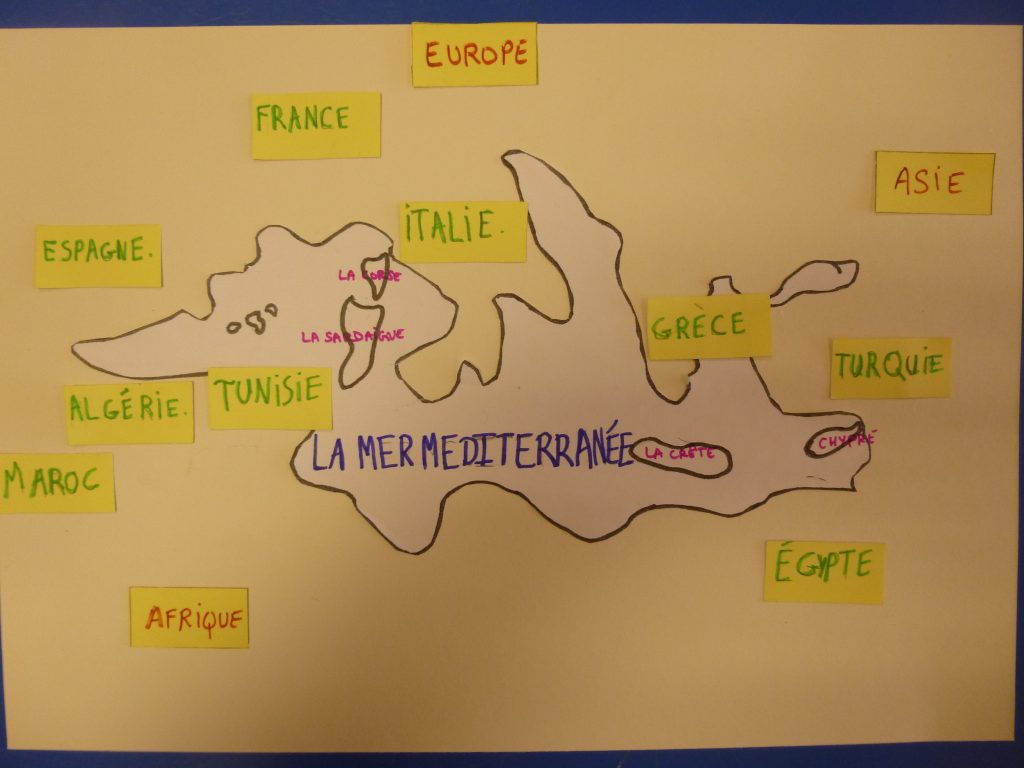 EUROPE
FRANCE
ASIE
ITALIE.
ESPAGNE.
LA CORSE
GRÈCE
LA SARDAIGNE
TURQUIE
TUNISIE
ALGÉRIE.
LA MER MEDITERRANÉE
LA CRÈTE
CHYPRÉ
MAROC
ÉGYPTE
AFRIQUE